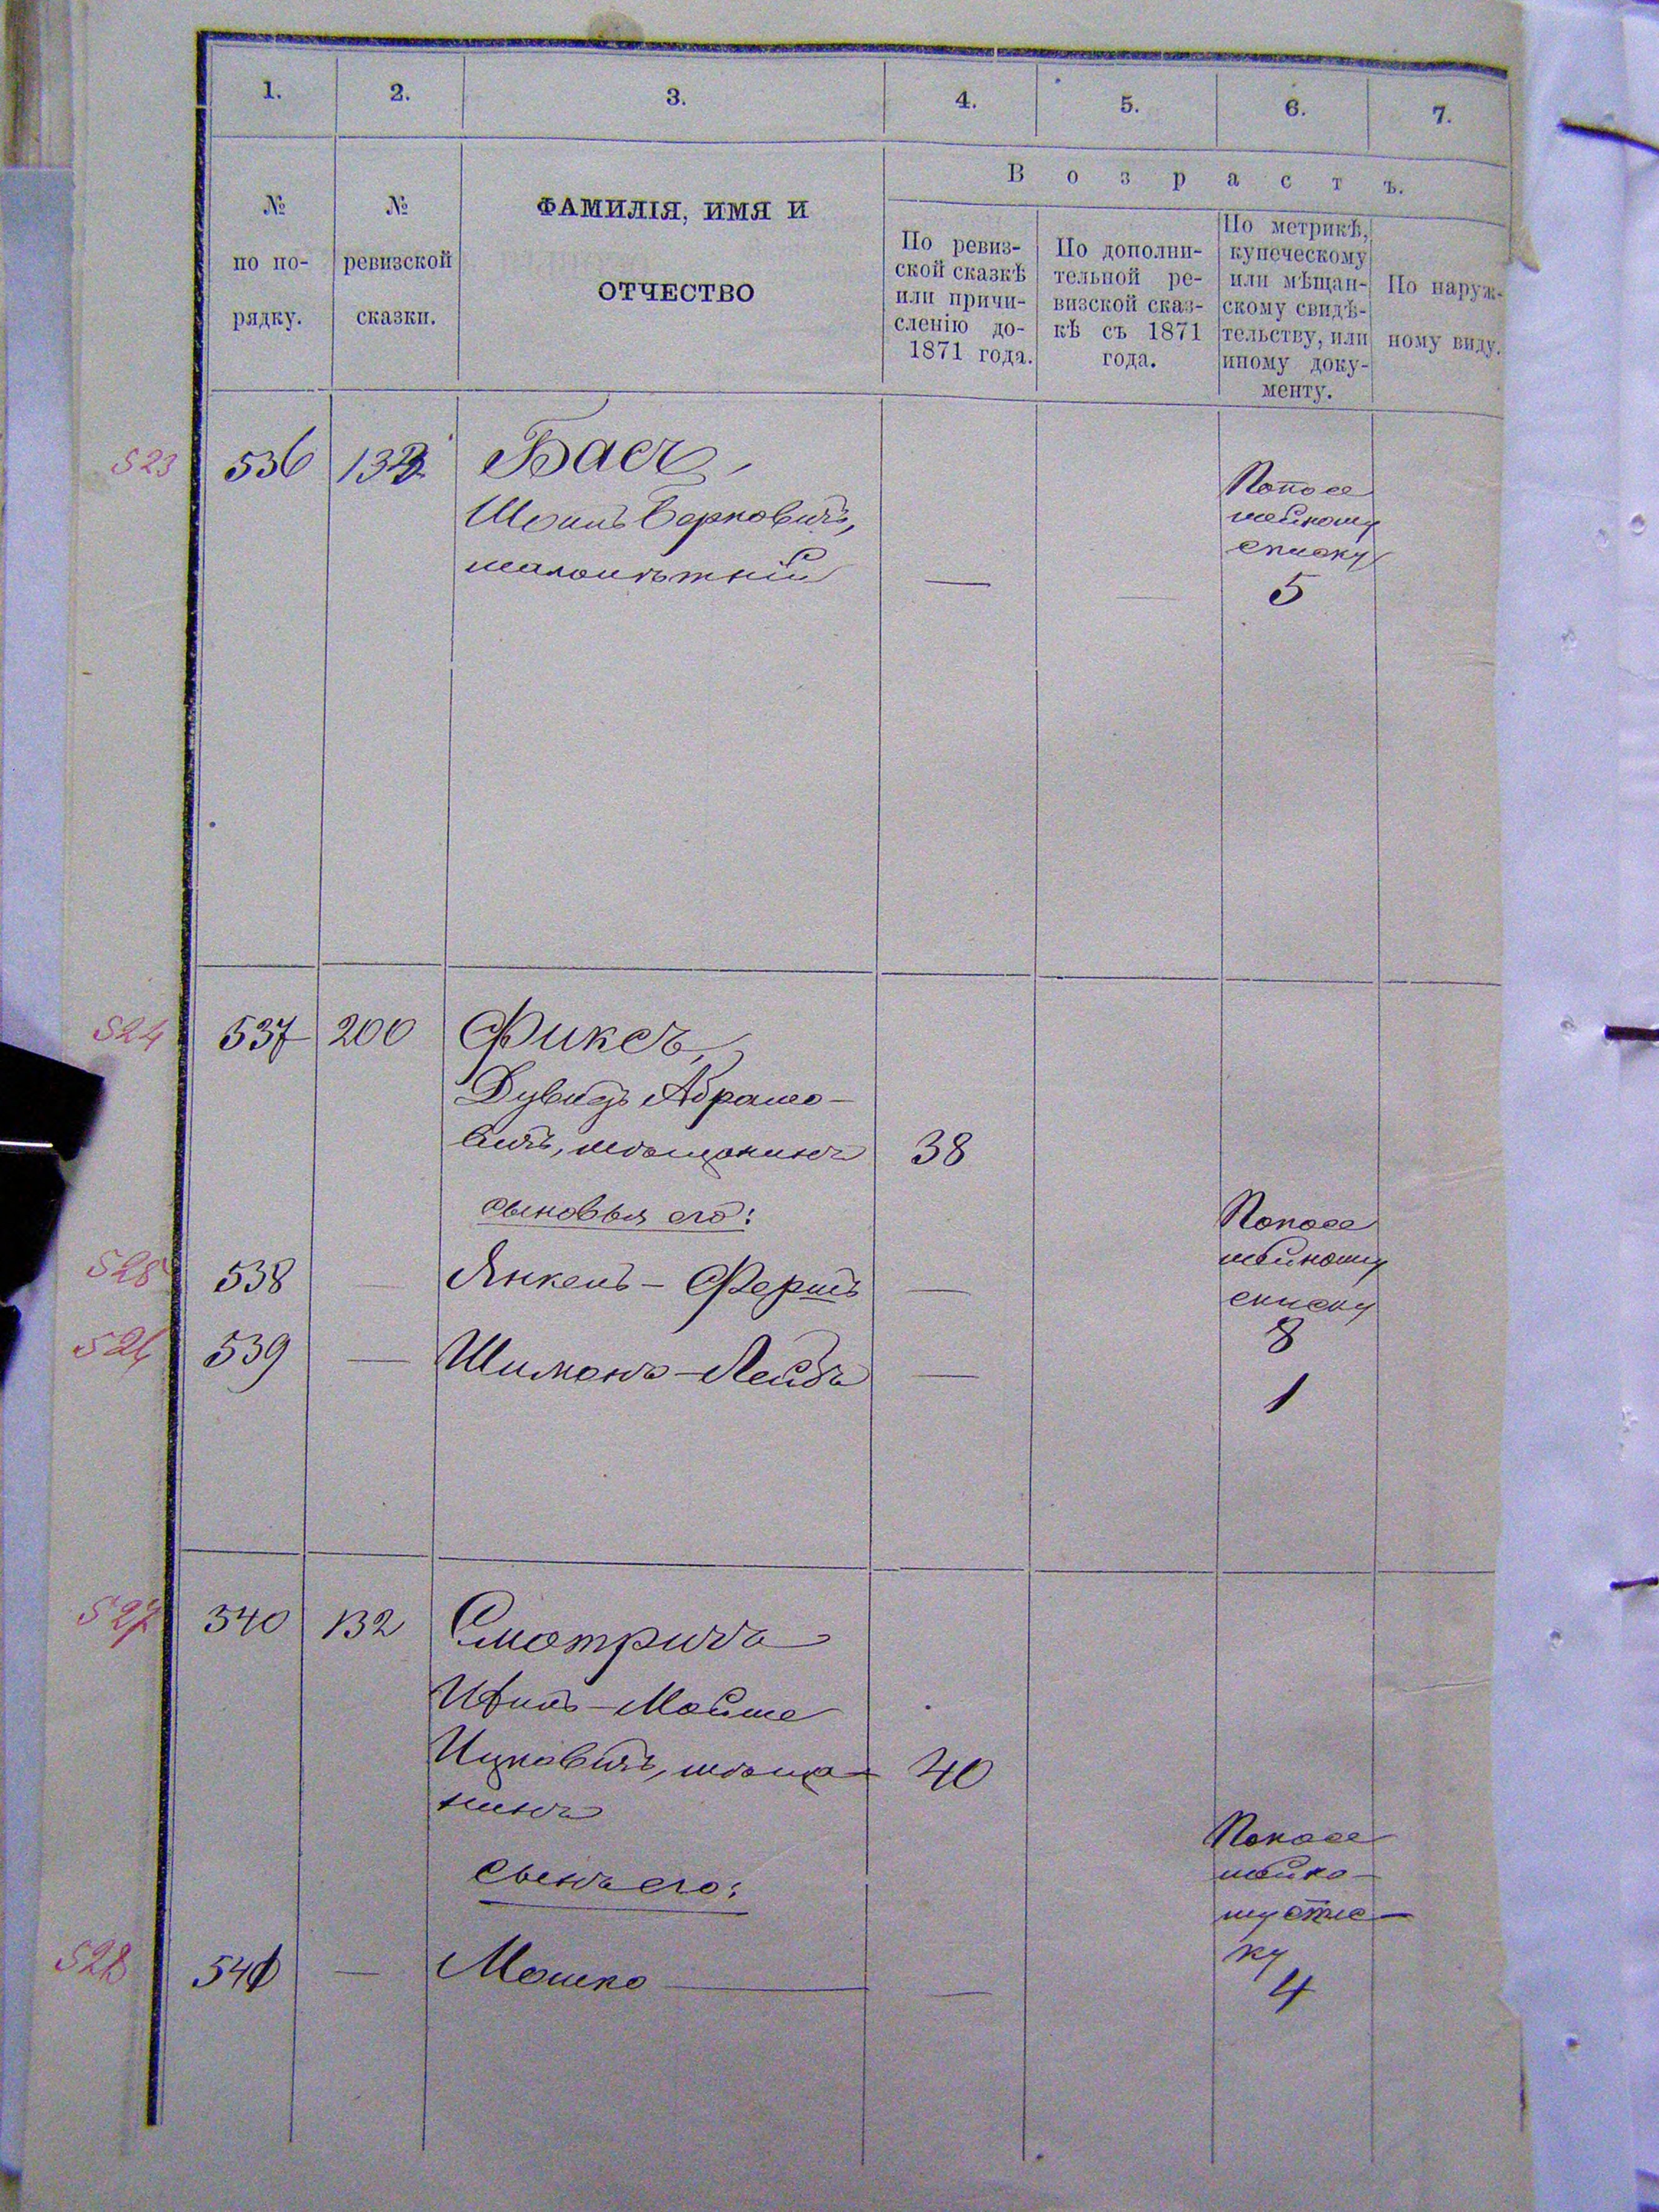 1. 2. 3. 4. 5. 6. 7.
№ по по-рядку.
№ ревизской сказки.
ФАМИЛІЯ, ИМЯ И
ОТЧЕСТВО
Возрастъ.
По ревиз-
ской сказкѣ
или причи-
сленію до-
1871 года.
По дополни-
тельной ре-
визской сказ-
кѣ съ 1871
года.
По метрикѣ,
купеческому
или мѣщан-
скому свидѣ-
тельству, или
иному доку-
менту.
По наруж-
ному виду.
523 536 132 Басъ,
Шоилъ Берковичъ,
малолѣтній — —
По посе
мейному
списку
5
524 537 200 Фиксъ,
Дувидъ Абрамо-
вичъ, мѣщанинъ 38
сыновья его:
По посе
мейному
списку
525 538 — Янкель-Фершъ — 8
526 539 — Шимонъ-Лейбъ — 1
527 540 132 Смотричъ
-Мойше
Ицковичъ, мѣща- 40
нинъ
сынъ его:
По посе
мейно-
му спис-
ку
528 541 — Мошко — 4